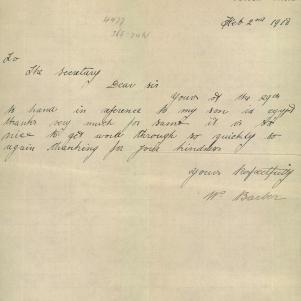 Feb 2nd 1918
To
The Secretary
Dear sir
Yours of the
to hand in reference to my son in egypt
thanks very much for same it is so
nice to get word through so quickly so
again thanking for your kindness
Yours Respectfully
Wm Barber